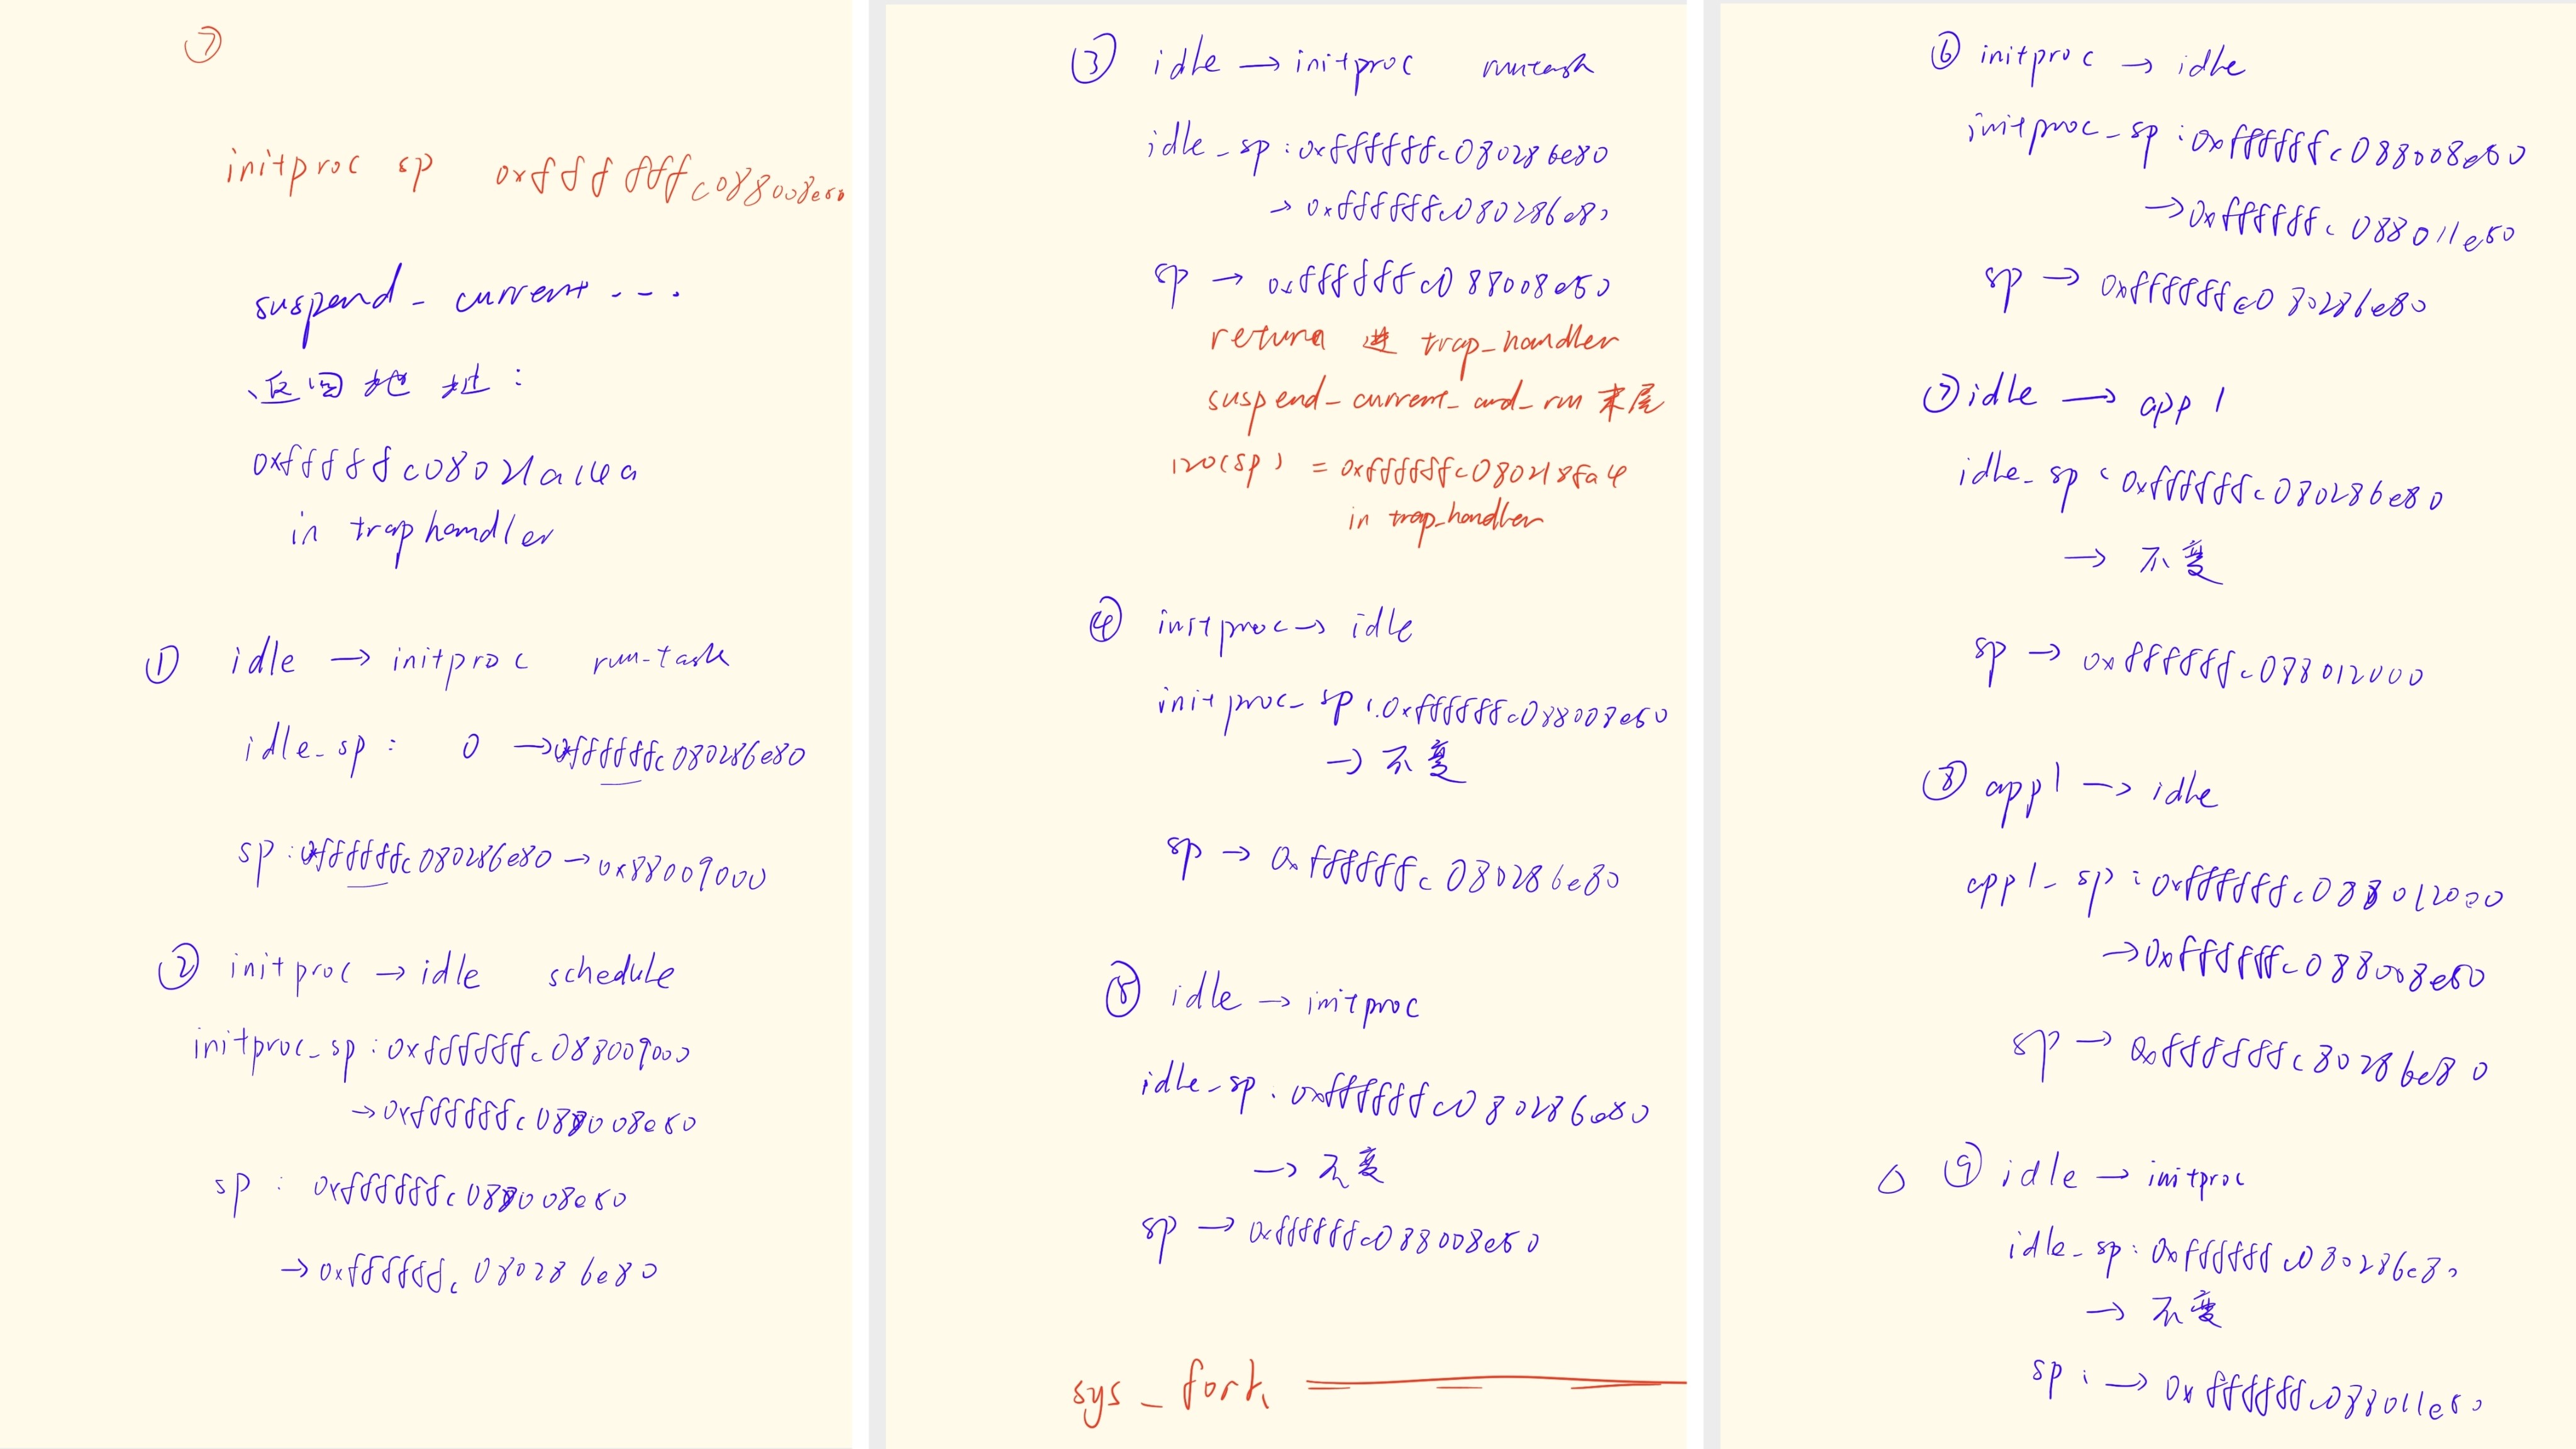 ⑦
initproc sp 0xffffffc088008e50
suspend_current...
返回地址:
0xfffffc08021a14a
in traphandler
① idle → initproc run-task
idle_sp: 0 → 0xffffffc080286e80
sp: 0xffffffc080286e80 → 0x88009000
② initproc → idle schedule
initproc_sp: 0xffffffc088009000
→ 0xffffffc088008e50
sp: 0xffffffc088008e50
→ 0xffffffc080286e80
③ idle → initproc runtask
idle_sp: 0xffffffc080286e80
→ 0xffffffc080286e80
sp → 0xffffffc088008e50
return 进 trap_handler
suspend_current_and_run 末尾
120(sp) = 0xffffffc080218fa4
in trap_handler
④ initproc → idle
initproc_sp: 0xffffffc088008e50
→ 不变
sp → 0xffffffc080286e80
⑤ idle → initproc
idle_sp: 0xffffffc080286e80
→ 不变
sp → 0xffffffc088008e50
sys_fork
⑥ initproc → idle
initproc_sp: 0xffffffc088008e50
→ 0xffffffc088011e50
sp → 0xffffffc080286e80
⑦ idle → app1
idle_sp: 0xffffffc080286e80
→ 不变
sp → 0xffffffc088012000
⑧ app1 → idle
app1_sp: 0xffffffc088012000
→ 0xffffffc088008e50
sp → 0xffffffc80286e80
△ ⑨ idle → initproc
idle_sp: 0xffffffc080286e80
→ 不变
sp: → 0xffffffc088011e50